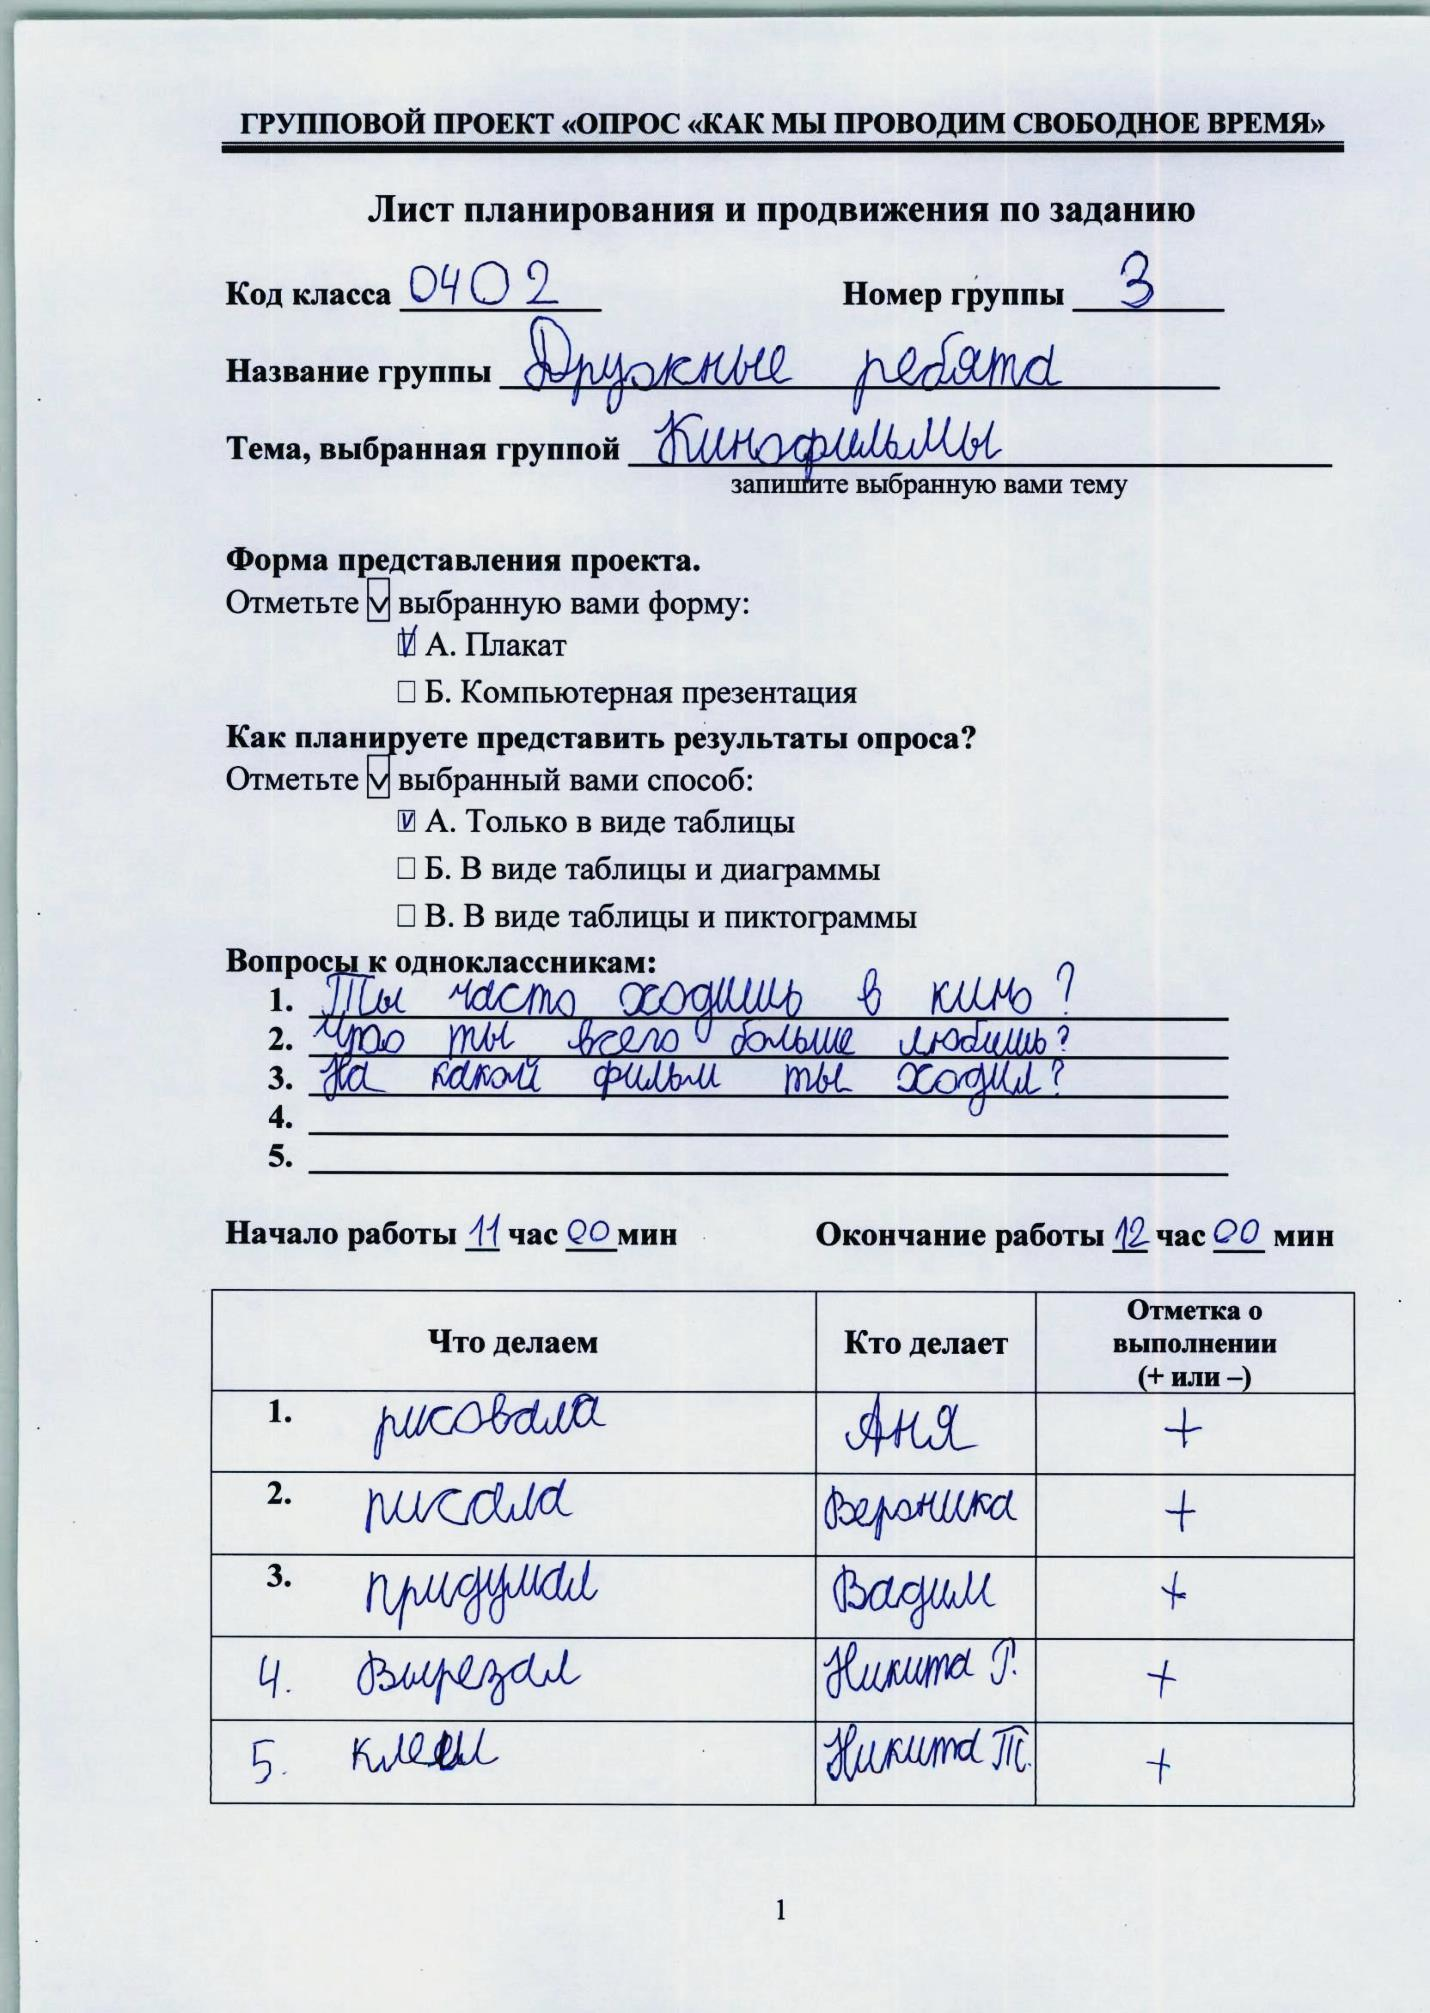 ГРУППОВОЙ ПРОЕКТ «ОПРОС «КАК МЫ ПРОВОДИМ СВОБОДНОЕ ВРЕМЯ»
Лист планирования и продвижения по заданию
Код класса 0402 Номер группы 3
Название группы Дружные ребята
Тема, выбранная группой Кинофильмы
запишите выбранную вами тему
Форма представления проекта.
Отметьте ☑ выбранную вами форму:
☑ А. Плакат
☐ Б. Компьютерная презентация
Как планируете представить результаты опроса?
Отметьте ☑ выбранный вами способ:
☑ А. Только в виде таблицы
☐ Б. В виде таблицы и диаграммы
☐ В. В виде таблицы и пиктограммы
Вопросы к одноклассникам:
1. Ты часто ходишь в кино?
2. Что ты всего больше любишь?
3. На какой фильм ты ходил?
4.
5.
Начало работы 11 час 00 мин Окончание работы 12 час 00 мин
Что делаем Кто делает Отметка о
выполнении
(+ или –)
1. рисовала Аня +
2. писала Вероника +
3. придумал Вадим +
4. Вырезал Никита Г. +
5. Никита Т. +
1